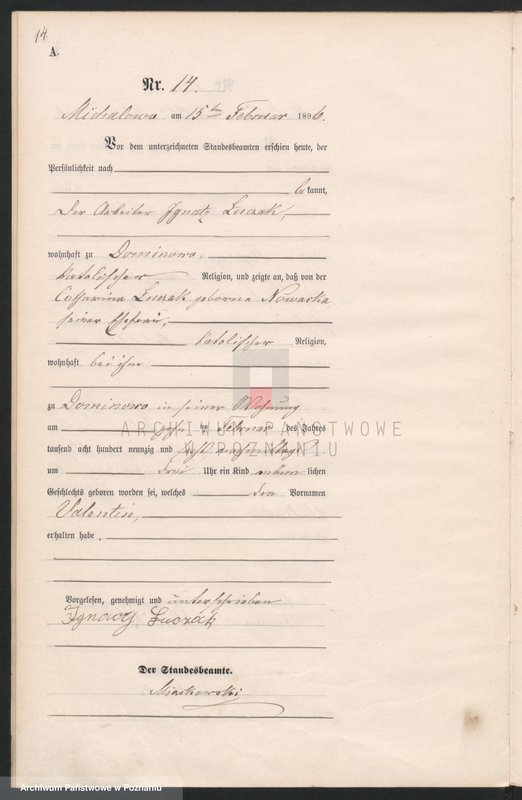 14.
A.
Nr. 14.
Michalowo am 15ten Februar 1896.
Vor dem unterzeichneten Standesbeamten erschien heute, der
Persönlichkeit nach
bekannt,
der Arbeiter Ignatz Luczak,
wohnhaft zu Dominowo.
katolischer Religion, und zeigte an, daß von der
Catharina Luczak geborene Nowacka
seiner Ehefrau,
katolischer Religion,
wohnhaft bei ihm
zu Dominowo in seiner Wohnung
am ten Februar des Jahres
tausend acht hundert neunzig und sechs nachmittags
um drei Uhr ein Kind männlichen
Geschlechts geboren worden sei, welches den Vornamen
Valentin,
erhalten habe.
Vorgelesen, genehmigt und unterschrieben
Ignacy Luczak
Der Standesbeamte.
Miaskowski
ARCHIWUM PAŃSTWOWE
W POZNANIU
Archiwum Państwowe w Poznaniu